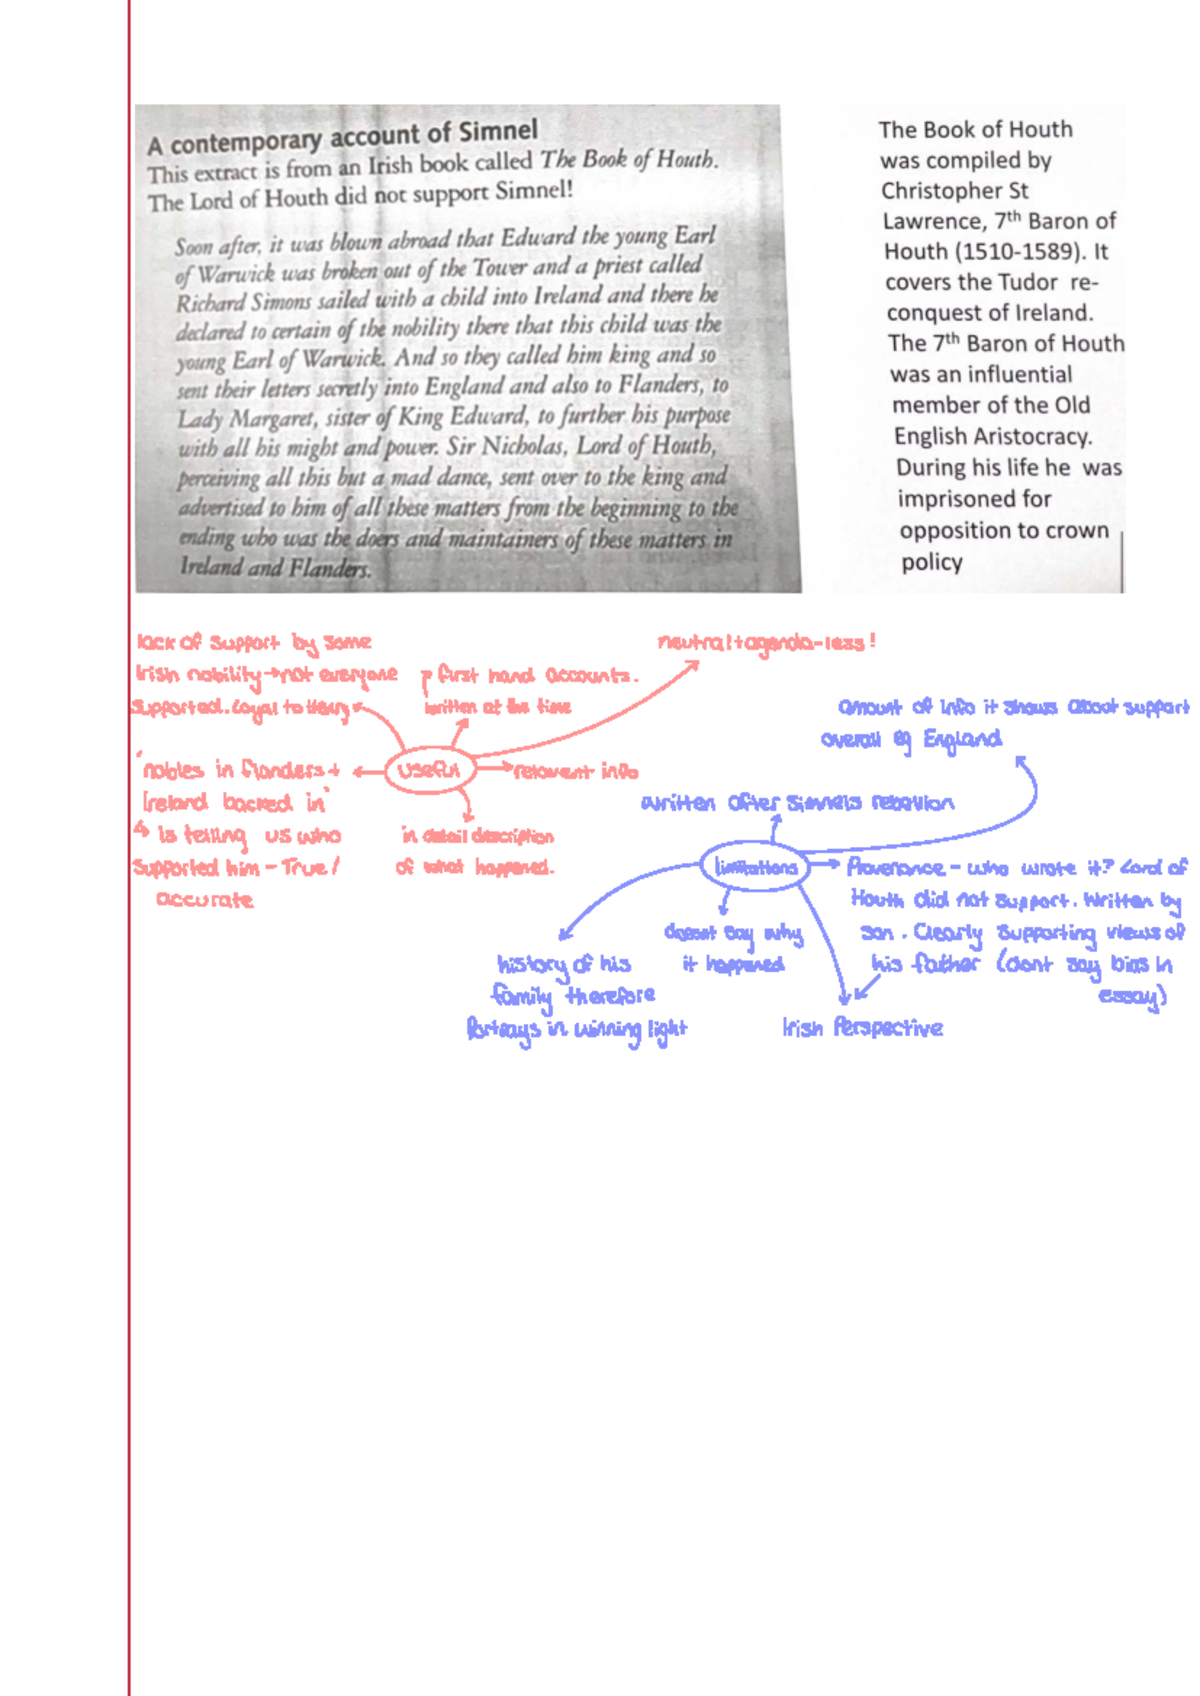 A contemporary account of Simnel
This extract is from an Irish book called The Book of Houth.
The Lord of Houth did not support Simnel!
Soon after, it was blown abroad that Edward the young Earl
of Warwick was broken out of the Tower and a priest called
Richard Simons sailed with a child into Ireland and there he
declared to certain of the nobility there that this child was the
young Earl of Warwick. And so they called him king and so
sent their letters secretly into England and also to Flanders, to
Lady Margaret, sister of King Edward, to further his purpose
with all his might and power. Sir Nicholas, Lord of Houth,
perceiving all this but a mad dance, sent over to the king and
advertised to him of all these matters from the beginning to the
ending who was the doers and maintainers of these matters in
Ireland and Flanders.
The Book of Houth
was compiled by
Christopher St
Lawrence, 7th Baron of
Houth (1510-1589). It
covers the Tudor re-
conquest of Ireland.
The 7th Baron of Houth
was an influential
member of the Old
English Aristocracy.
During his life he was
imprisoned for
opposition to crown
policy
lack of support by some
Irish nobility → not everyone
supported. Loyal to Henry
first hand accounts.
written at the time
neutral + agenda-less!
useful
relevant info
'nobles in flanders +
Ireland backed in'
↳ is telling us who
supported him - True /
accurate
in detail description
of what happened.
amount of info it shows about support
overall eg England
written after Simnels rebellion
limitations
Provenance - who wrote it? Lord of
Houth did not support. Written by
son. Clearly supporting views of
his father (dont say bias in
essay)
doesnt say why
it happened
history of his
family therefore
Portrays in winning light
Irish Perspective